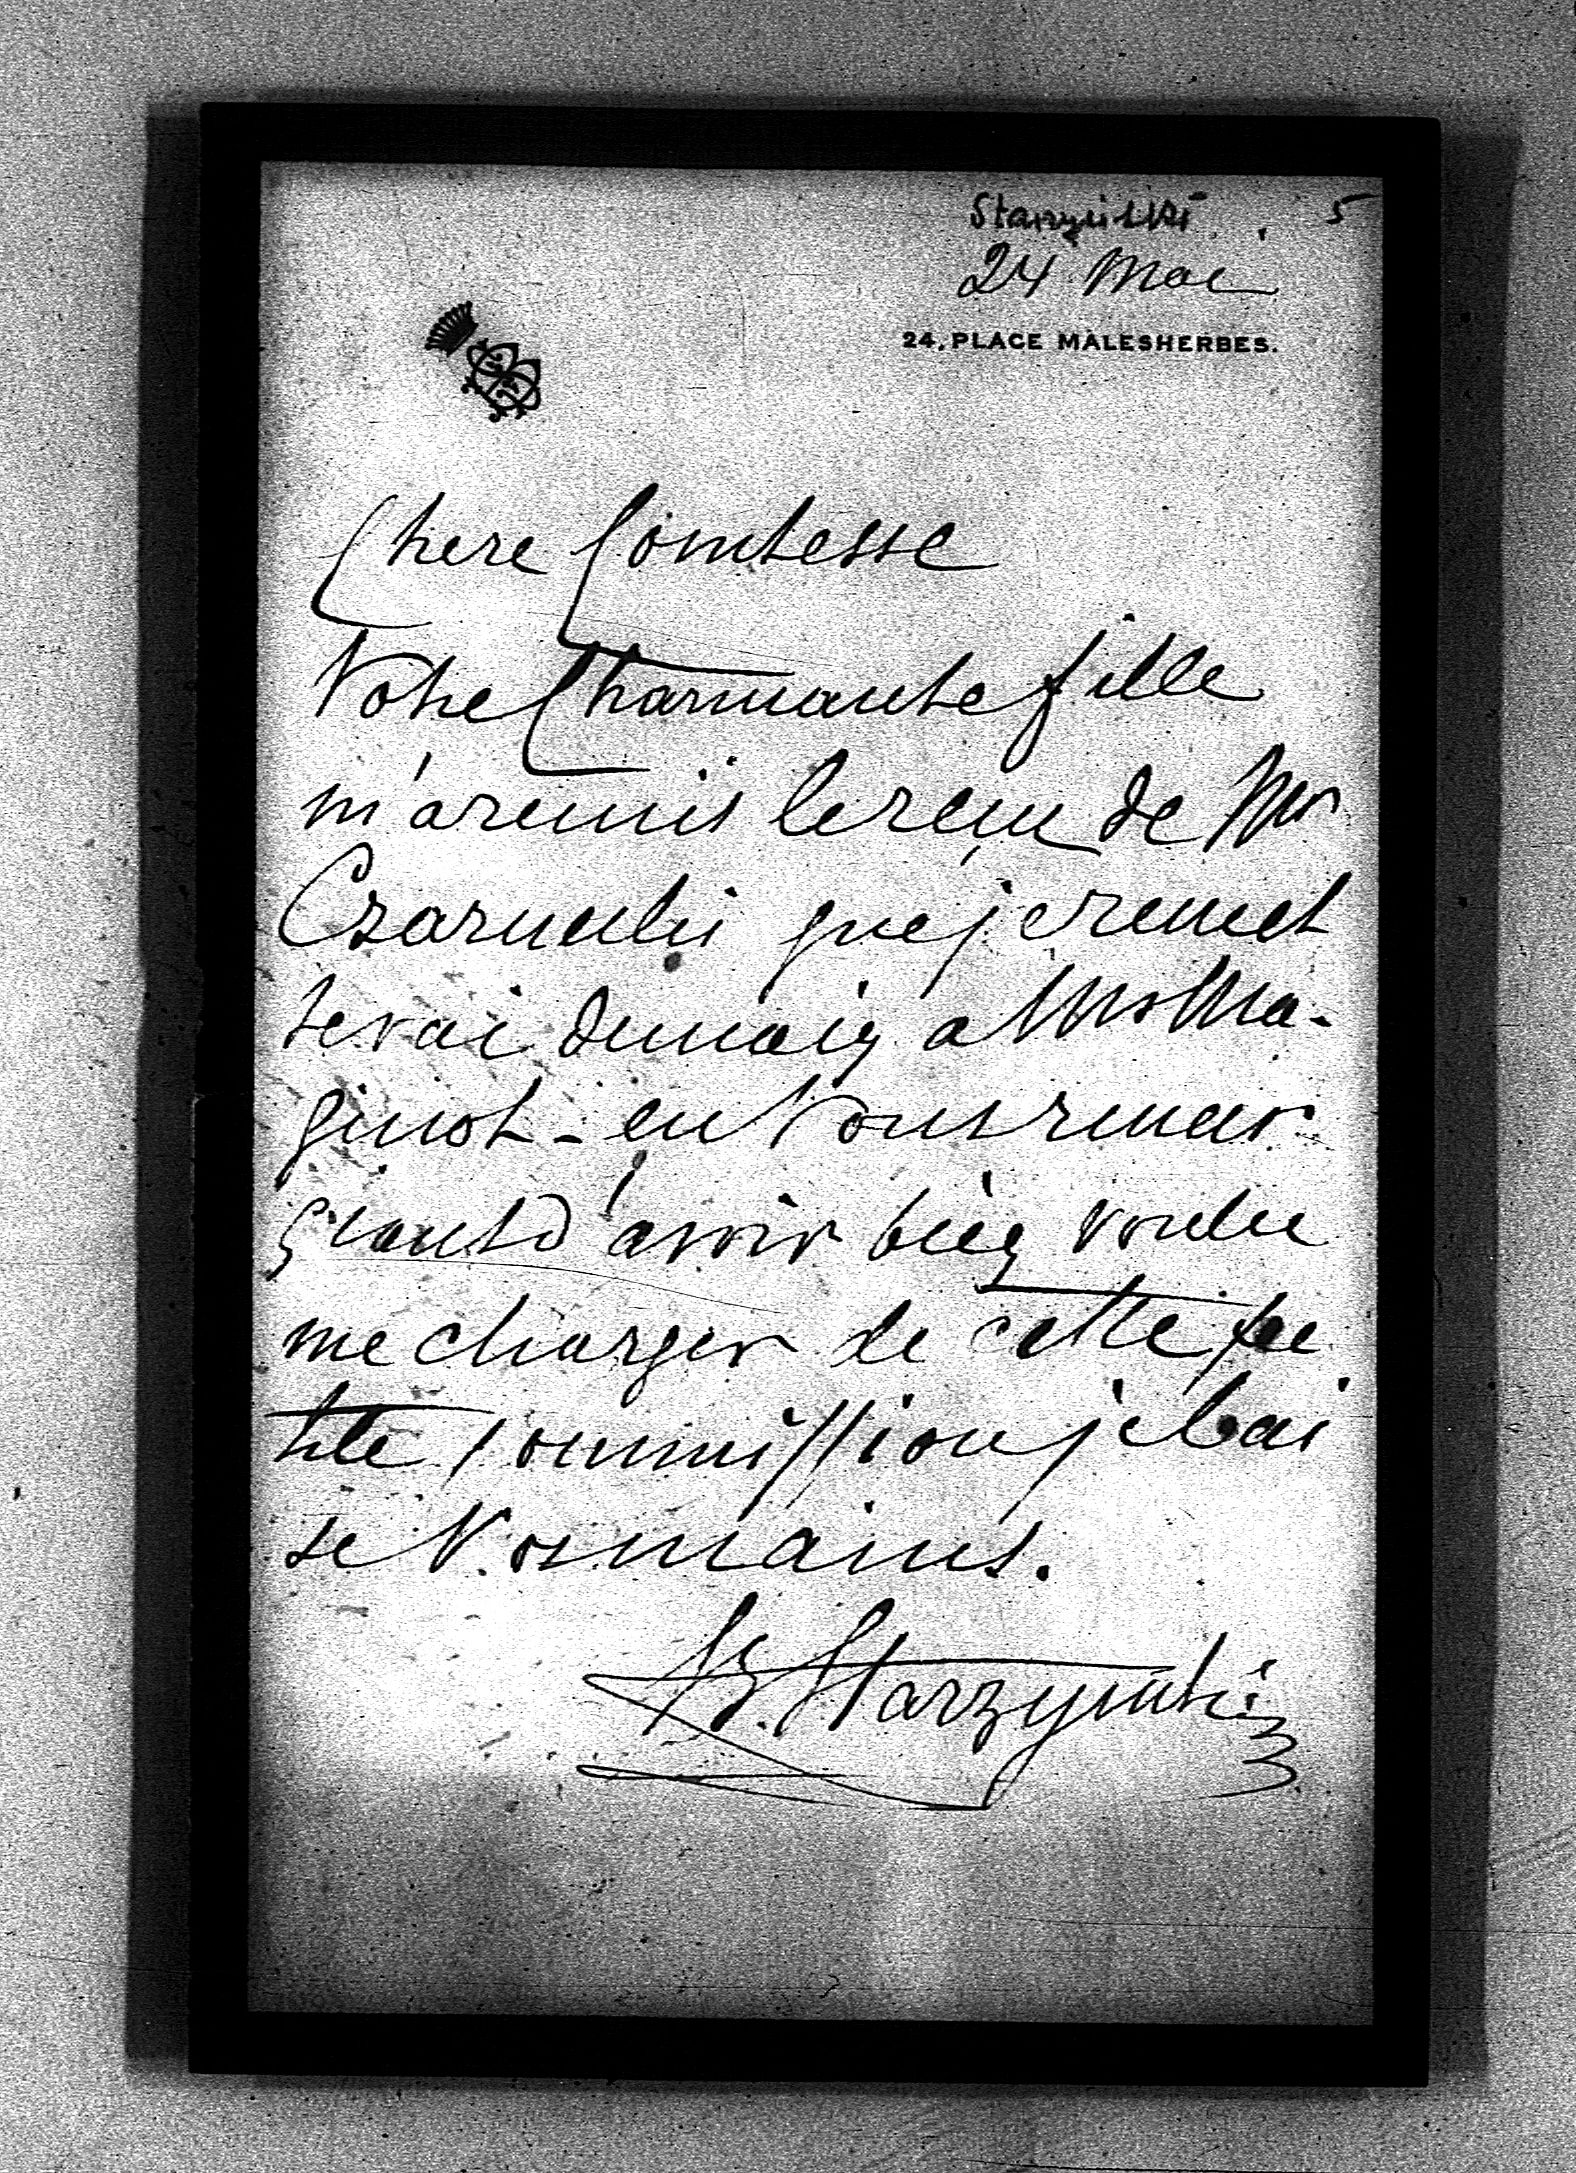 Starzyński 5
24 Mai
24, PLACE MALESHERBES.
Chere Comtesse
Votre Charmante fille
m'a remis le reçu de Mr
Czarnecki que je remet
terai demain a Mr Ma-
ginot - en Vous remer
ciant d'avoir bien voulu
me charger de cette pe
tite Commission je bai
se Vos mains.
B. Starzynski